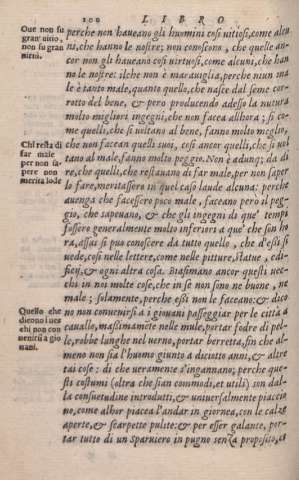 100 LIBRO
Oue non fu
gran' uitio,
non fu gran
uirtu.
perche non haueano gli huomini cosi uitiosi, come alcu
ni, che hanno le nostre; non conoscono, che quelle an-
cor non gli haueano cosi uirtuosi, come alcuni, che han
no le nostre: ilche non è marauiglia, perche niun ma
le è tanto male, quanto quello, che nasce dal seme cor-
rotto del bene, & però producendo adesso la natura
molto migliori ingegni, che non facea allhora; si co-
me quelli, che si uoltano al bene, fanno molto meglio,
Chi resta di
far male
per non sa-
pere non
merita lode
che non facean quelli suoi, cosi ancor quelli, che si uol
tano al male, fanno molto peggio. Non è adunq; da di
re, che quelli, che restauano di far male, per non saper
lo fare, meritassero in quel caso laude alcuna: perche
auenga che facessero poco male, faceano però il peg-
gio, che sapeuano, & che gli ingegni di que' tempi
fossero generalmente molto inferiori a que' che son ho
ra, assai si puo conoscere da tutto quello, che d'essi si
uede, cosi nelle lettere, come nelle pitture, statue, edi-
ficij, & ogni altra cosa. Biasimano ancor questi uec-
chi in noi molte cose, che in se non sono ne buone, ne
male; solamente, perche essi non le faceano: & dico
Quello che
dicono i uec
chi non con
uenirsi a gio
uani.
no non conuenirsi a i giouani passeggiar per le città a
cauallo, massimamente nelle mule, portar fodre di pel-
le, robbe lunghe nel uerno, portar berretta, fin che al-
meno non sia l'huomo giunto a dieciotto anni, & altre
tai cose: di che ueramente s'ingannano; perche que-
sti costumi (oltra che sian commodi, et utili) son dal-
la consuetudine introdutti, & uniuersalmente piaccio
no, come alhor piacea l'andar in giornea, con le calze
aperte, & scarpette pulite: & per esser galante, por-
tar tutto dì un Sparuiero in pugno senza proposito, et